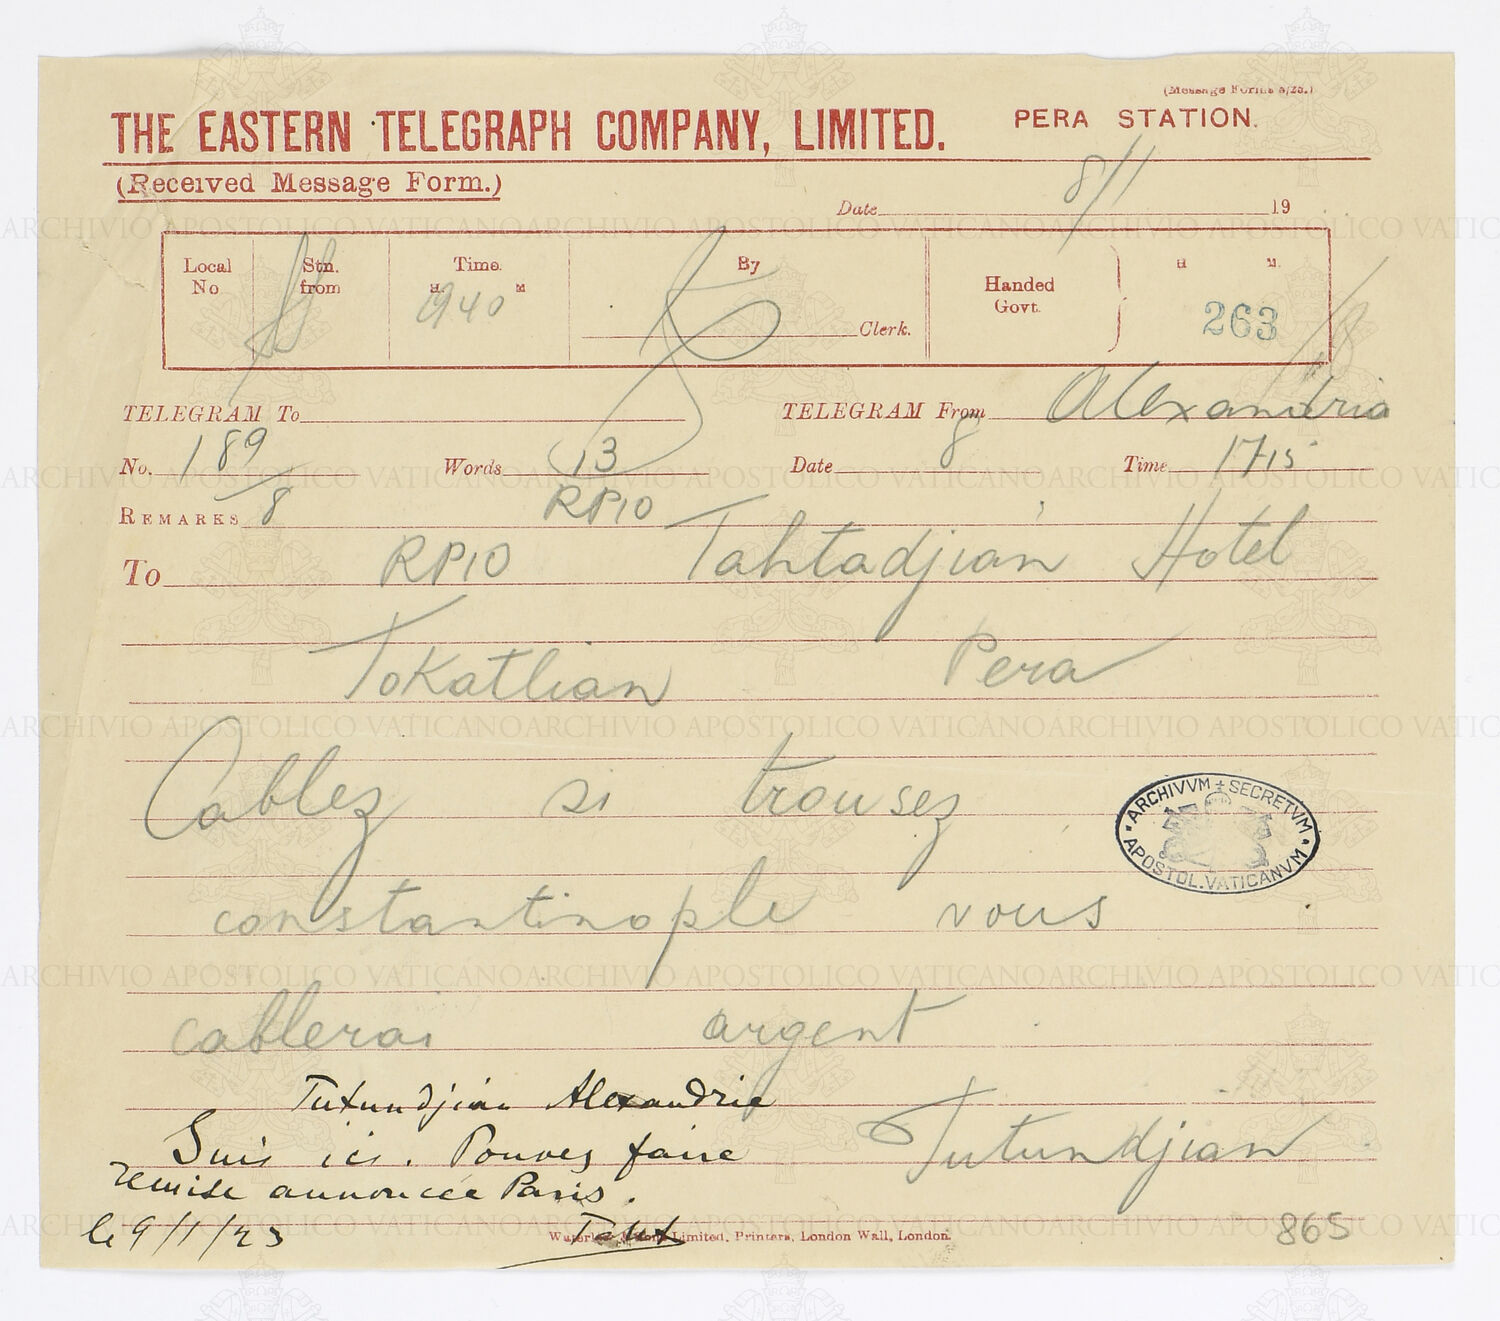 (Message Forms 5/23.)
THE EASTERN TELEGRAPH COMPANY, LIMITED. PERA STATION.
(Received Message Form.)
Date 8/1 19
Local No
Stn. from
Time. H. M
940
By
Clerk.
Handed Govt.
H M.
263
TELEGRAM To TELEGRAM From Alexandria
No. 189 Words 13 Date 8 Time 1715
REMARKS 8 RP10
To RP10 Tahtadjian Hotel
Tokatlian Pera
Cablez si trouvez
constantinople vous
cablerai argent
Tutundjian
Tutundjian Alexandrie
Suis ici. Pouvez faire
remise annoncée Paris.
le 9/1/23 Taht
Limited, Printers, London Wall, London.
865
ARCHIVVM SECRETVM APOSTOL. VATICANVM
ARCHIVIO APOSTOLICO VATICANO